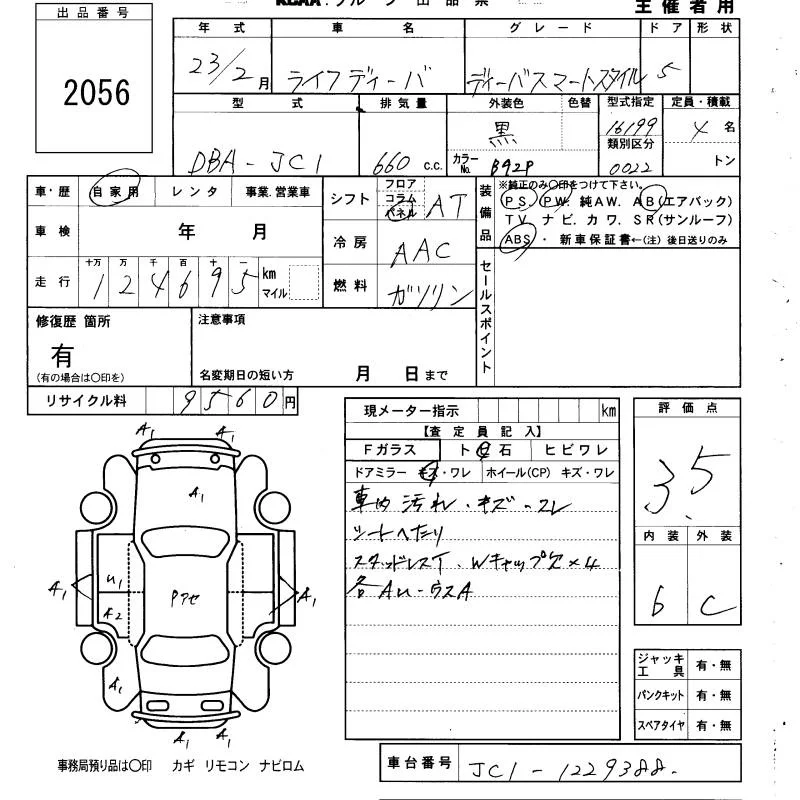 KCAA.グループ 出品票
主催者用
出品番号
2056
年式 車名 グレード ドア 形状
23/2月 ライフディーバ ディーバスマートスタイル 5
型式 排気量 外装色 色替 型式指定 定員・積載
DBA-JC1 660c.c. 黒 16199 4名
類別区分
カラーNo. B92P 0022 トン
車・歴 自家用 レンタ 事業.営業車
シフト フロア コラム パネル AT
車検 年 月
冷房 AAC
走行 十万 万 千 百 十 一
124695 km マイル
燃料 ガソリン
装備品
※純正のみ○印をつけて下さい。
PS. PW. 純AW. AB(エアバック)
TV. ナビ. カワ. SR(サンルーフ)
ABS ・ 新車保証書←(注)後日送りのみ
セールスポイント
修復歴 箇所
有
(有の場合は○印を)
注意事項
名変期日の短い方 月 日まで
リサイクル料 9560円
現メーター指示 km
【査定員記入】
Fガラス ト石 ヒビワレ
ドアミラー キズ・ワレ ホイール(CP) キズ・ワレ
車内 汚れ・キズ・コレ
シートヘたり
スタッドレスT. Wキャップ欠×4
各AU-ウスA
評価点
3.5
内装 外装
6 C
A1 A1
A1
A1 U1 A1
A2
Pアセ
A1
A1 A1
ジャッキ工具 有・無
パンクキット 有・無
スペアタイヤ 有・無
事務局預り品は○印 カギ リモコン ナビロム
車台番号 JC1-1229388.